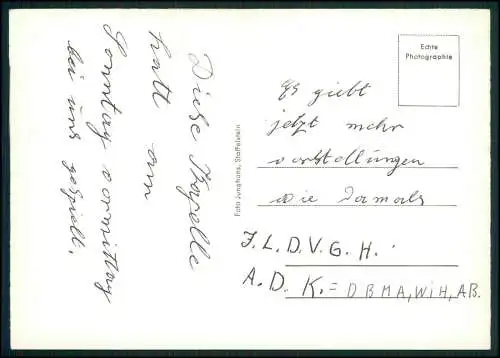 Diese Kapelle
hatt am
Sonntag vormittag
bei uns gespielt.
Foto Junghans, Staffelstein
Echte
Photographie
Es giebt
jetzt mehr
vorstellungen
wie damals
J. L. D. V. G. H.
A. D. K. = DBMA, WiH, AB.